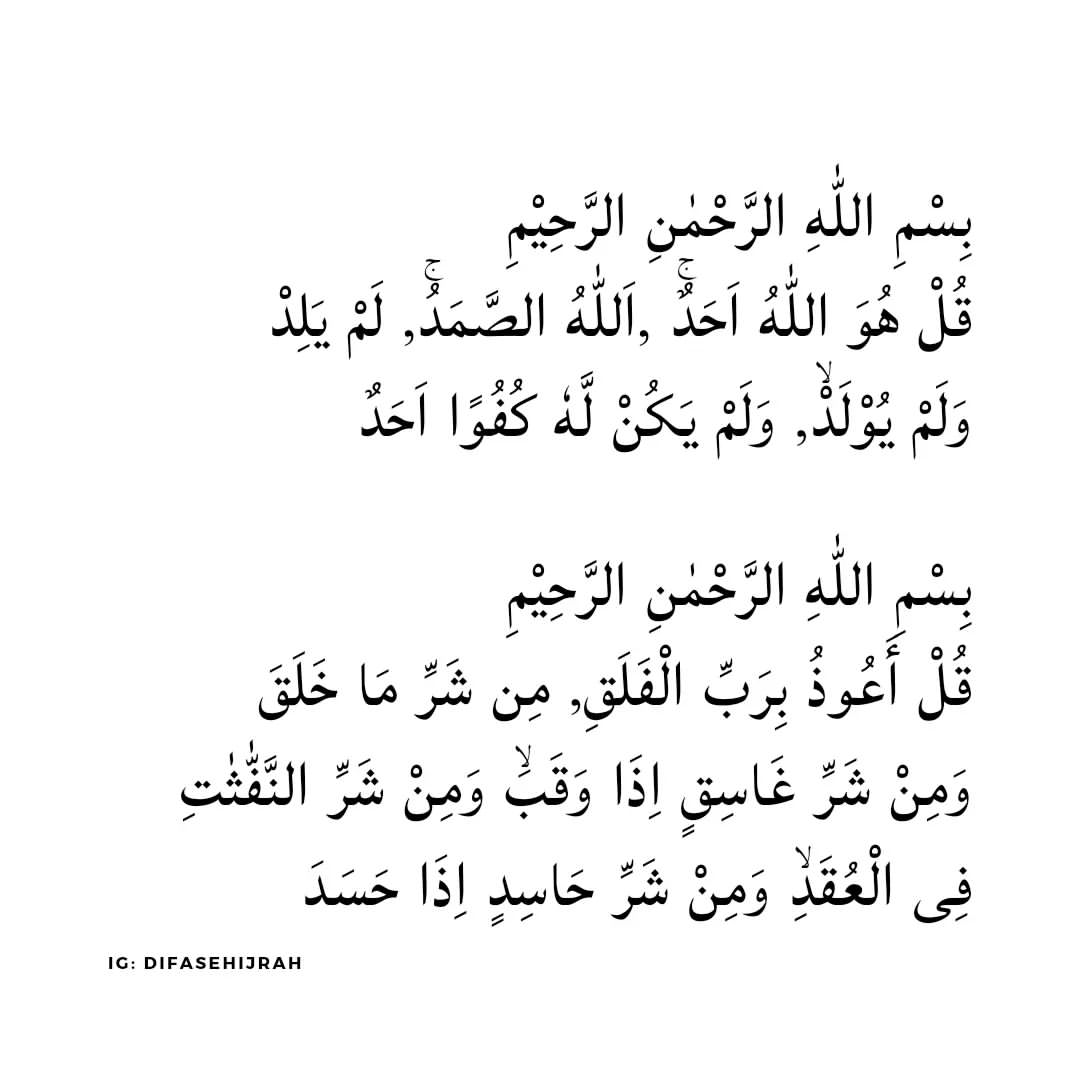 بِسْمِ اللّٰهِ الرَّحْمٰنِ الرَّحِيْمِ
قُلْ هُوَ اللّٰهُ اَحَدٌۚ ,اَللّٰهُ الصَّمَدُۚ, لَمْ يَلِدْ
وَلَمْ يُوْلَدْۙ, وَلَمْ يَكُنْ لَّهٗ كُفُوًا اَحَدٌ
بِسْمِ اللّٰهِ الرَّحْمٰنِ الرَّحِيْمِ
قُلْ أَعُوذُ بِرَبِّ الْفَلَقِ, مِن شَرِّ مَا خَلَقَ
وَمِنْ شَرِّ غَاسِقٍ اِذَا وَقَبَۙ وَمِنْ شَرِّ النَّفّٰثٰتِ
فِى الْعُقَدِۙ وَمِنْ شَرِّ حَاسِدٍ اِذَا حَسَدَ
IG: DIFASEHIJRAH